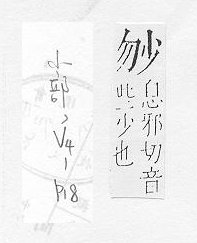 息邪切音
些少也
小部 V4- P18